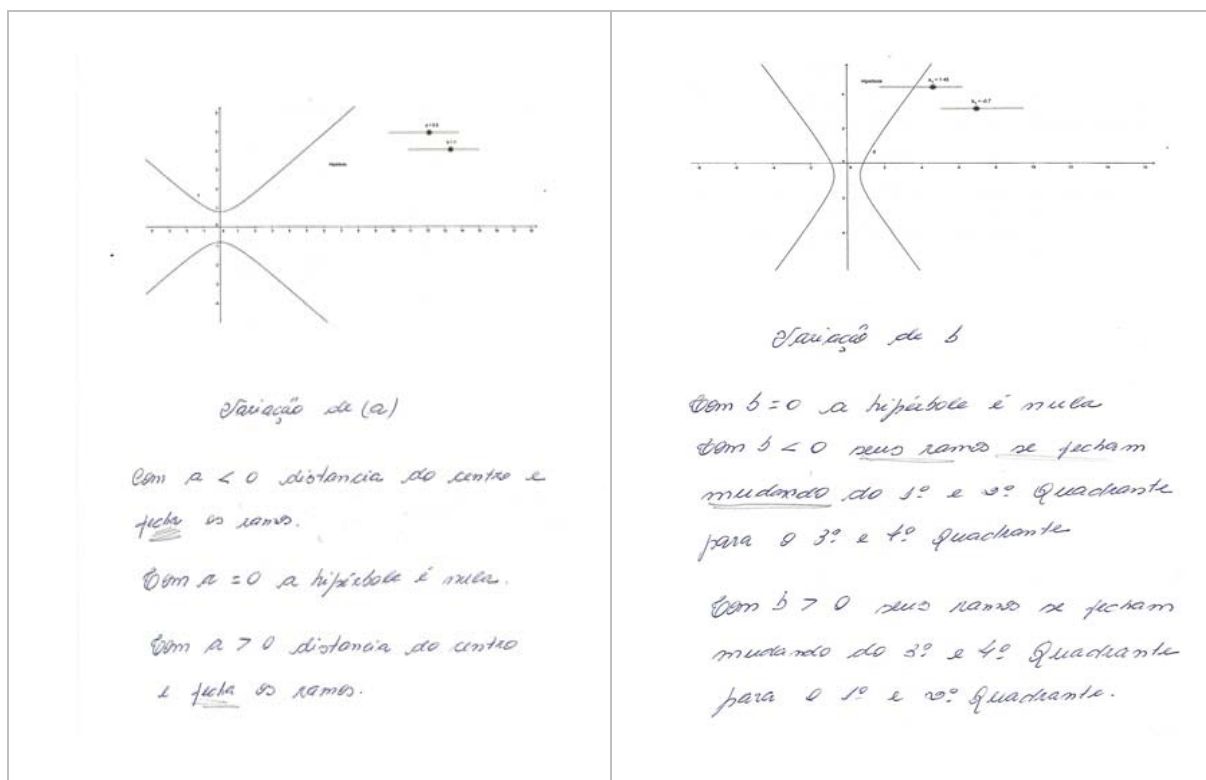 Hipérbole
Variação de (a)
Com a < 0 distancia do centro e
fecha os ramos.
Com a = 0 a hipérbole é nula.
Com a > 0 distancia do centro
e fecha os ramos.
Hipérbole
Variação de b
Com b = 0 a hipérbole é nula
Com b < 0 seus ramos se fecham
mudando do 1º e 2º Quadrante
para o 3º e 4º Quadrante
Com b > 0 seus ramos se fecham
mudando do 3º e 4º Quadrante
para o 1º e 2º Quadrante.